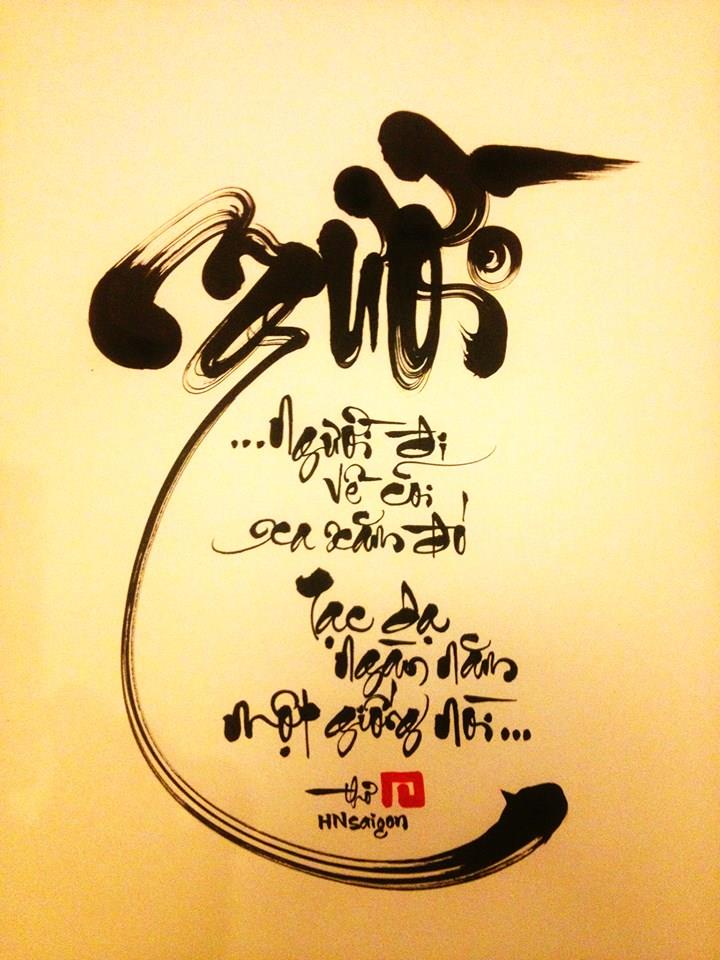 ...Người đi
về cõi
xa xăm đó
Tạc dạ
ngàn năm
một giống nòi...
thơ
HNsaigon